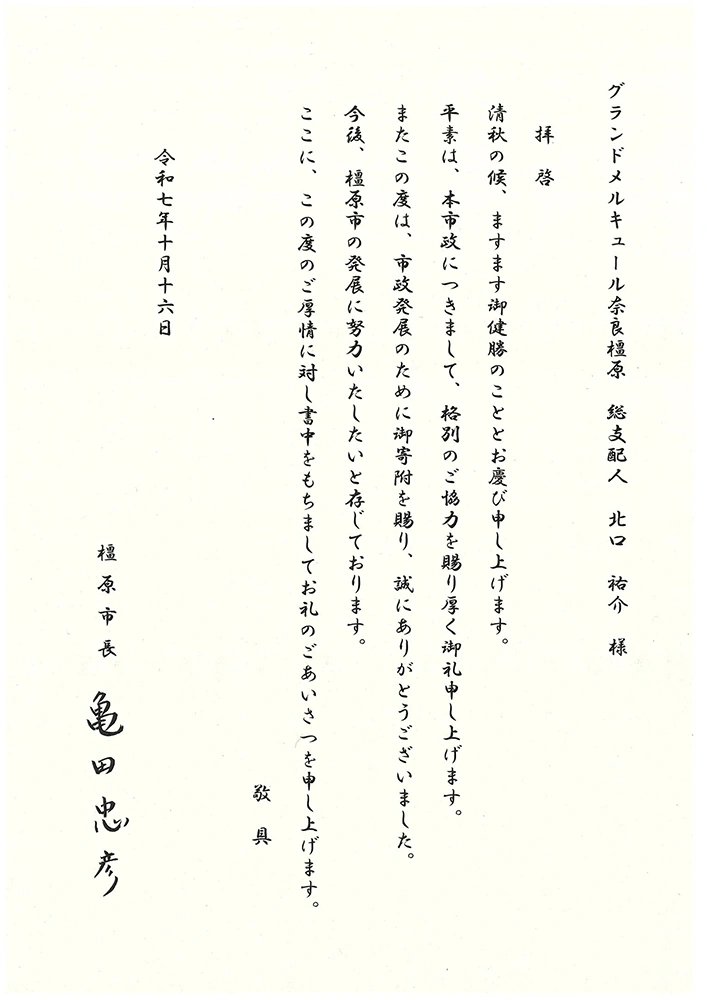 グランドメルキュール奈良橿原　総支配人　北口　祐介　様
拝啓
清秋の候、ますます御健勝のこととお慶び申し上げます。
平素は、本市政につきまして、格別のご協力を賜り厚く御礼申し上げます。
またこの度は、市政発展のために御寄附を賜り、誠にありがとうございました。
今後、橿原市の発展に努力いたしたいと存じております。
ここに、この度のご厚情に対し書中をもちましてお礼のごあいさつを申し上げます。
敬具
令和七年十月十六日
橿原市長　亀田忠彦